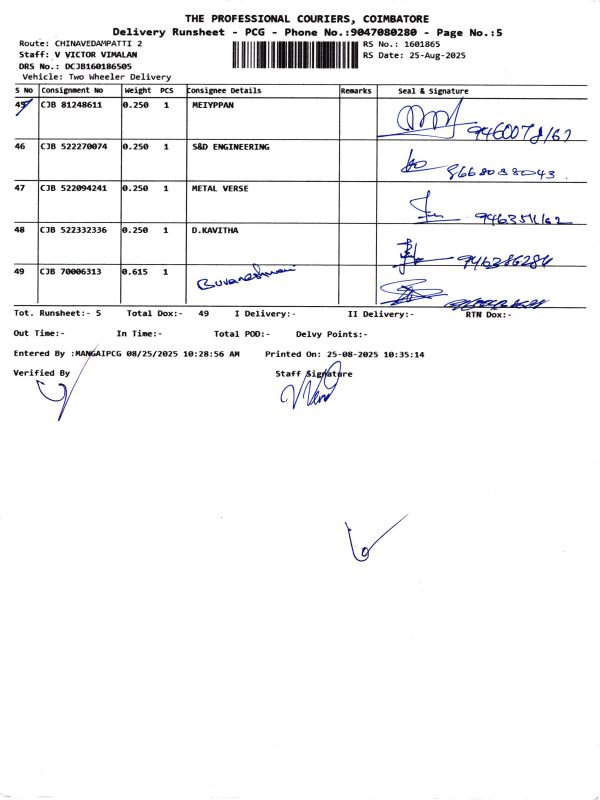 THE PROFESSIONAL COURIERS, COIMBATORE
Delivery Runsheet - PCG - Phone No.:9047080280 - Page No.:5
Route: CHINAVEDAMPATTI 2 RS No.: 1601865
Staff: V VICTOR VIMALAN RS Date: 25-Aug-2025
DRS No.: DCJB160186505
Vehicle: Two Wheeler Delivery
S No Consignment No Weight PCS Consignee Details Remarks Seal & Signature
45 CJB 81248611 0.250 1 MEIYPPAN
46 CJB 522270074 0.250 1 S&D ENGINEERING 8668038043
47 CJB 522094241 0.250 1 METAL VERSE
48 CJB 522332336 0.250 1 D.KAVITHA
49 CJB 70006313 0.615 1 Buvaneshwari
Tot. Runsheet:- 5 Total Dox:- 49 I Delivery:- II Delivery:- RTN Dox:-
Out Time:- In Time:- Total POD:- Delvy Points:-
Entered By :MANGAIPCG 08/25/2025 10:28:56 AM Printed On: 25-08-2025 10:35:14
Verified By Staff Signature